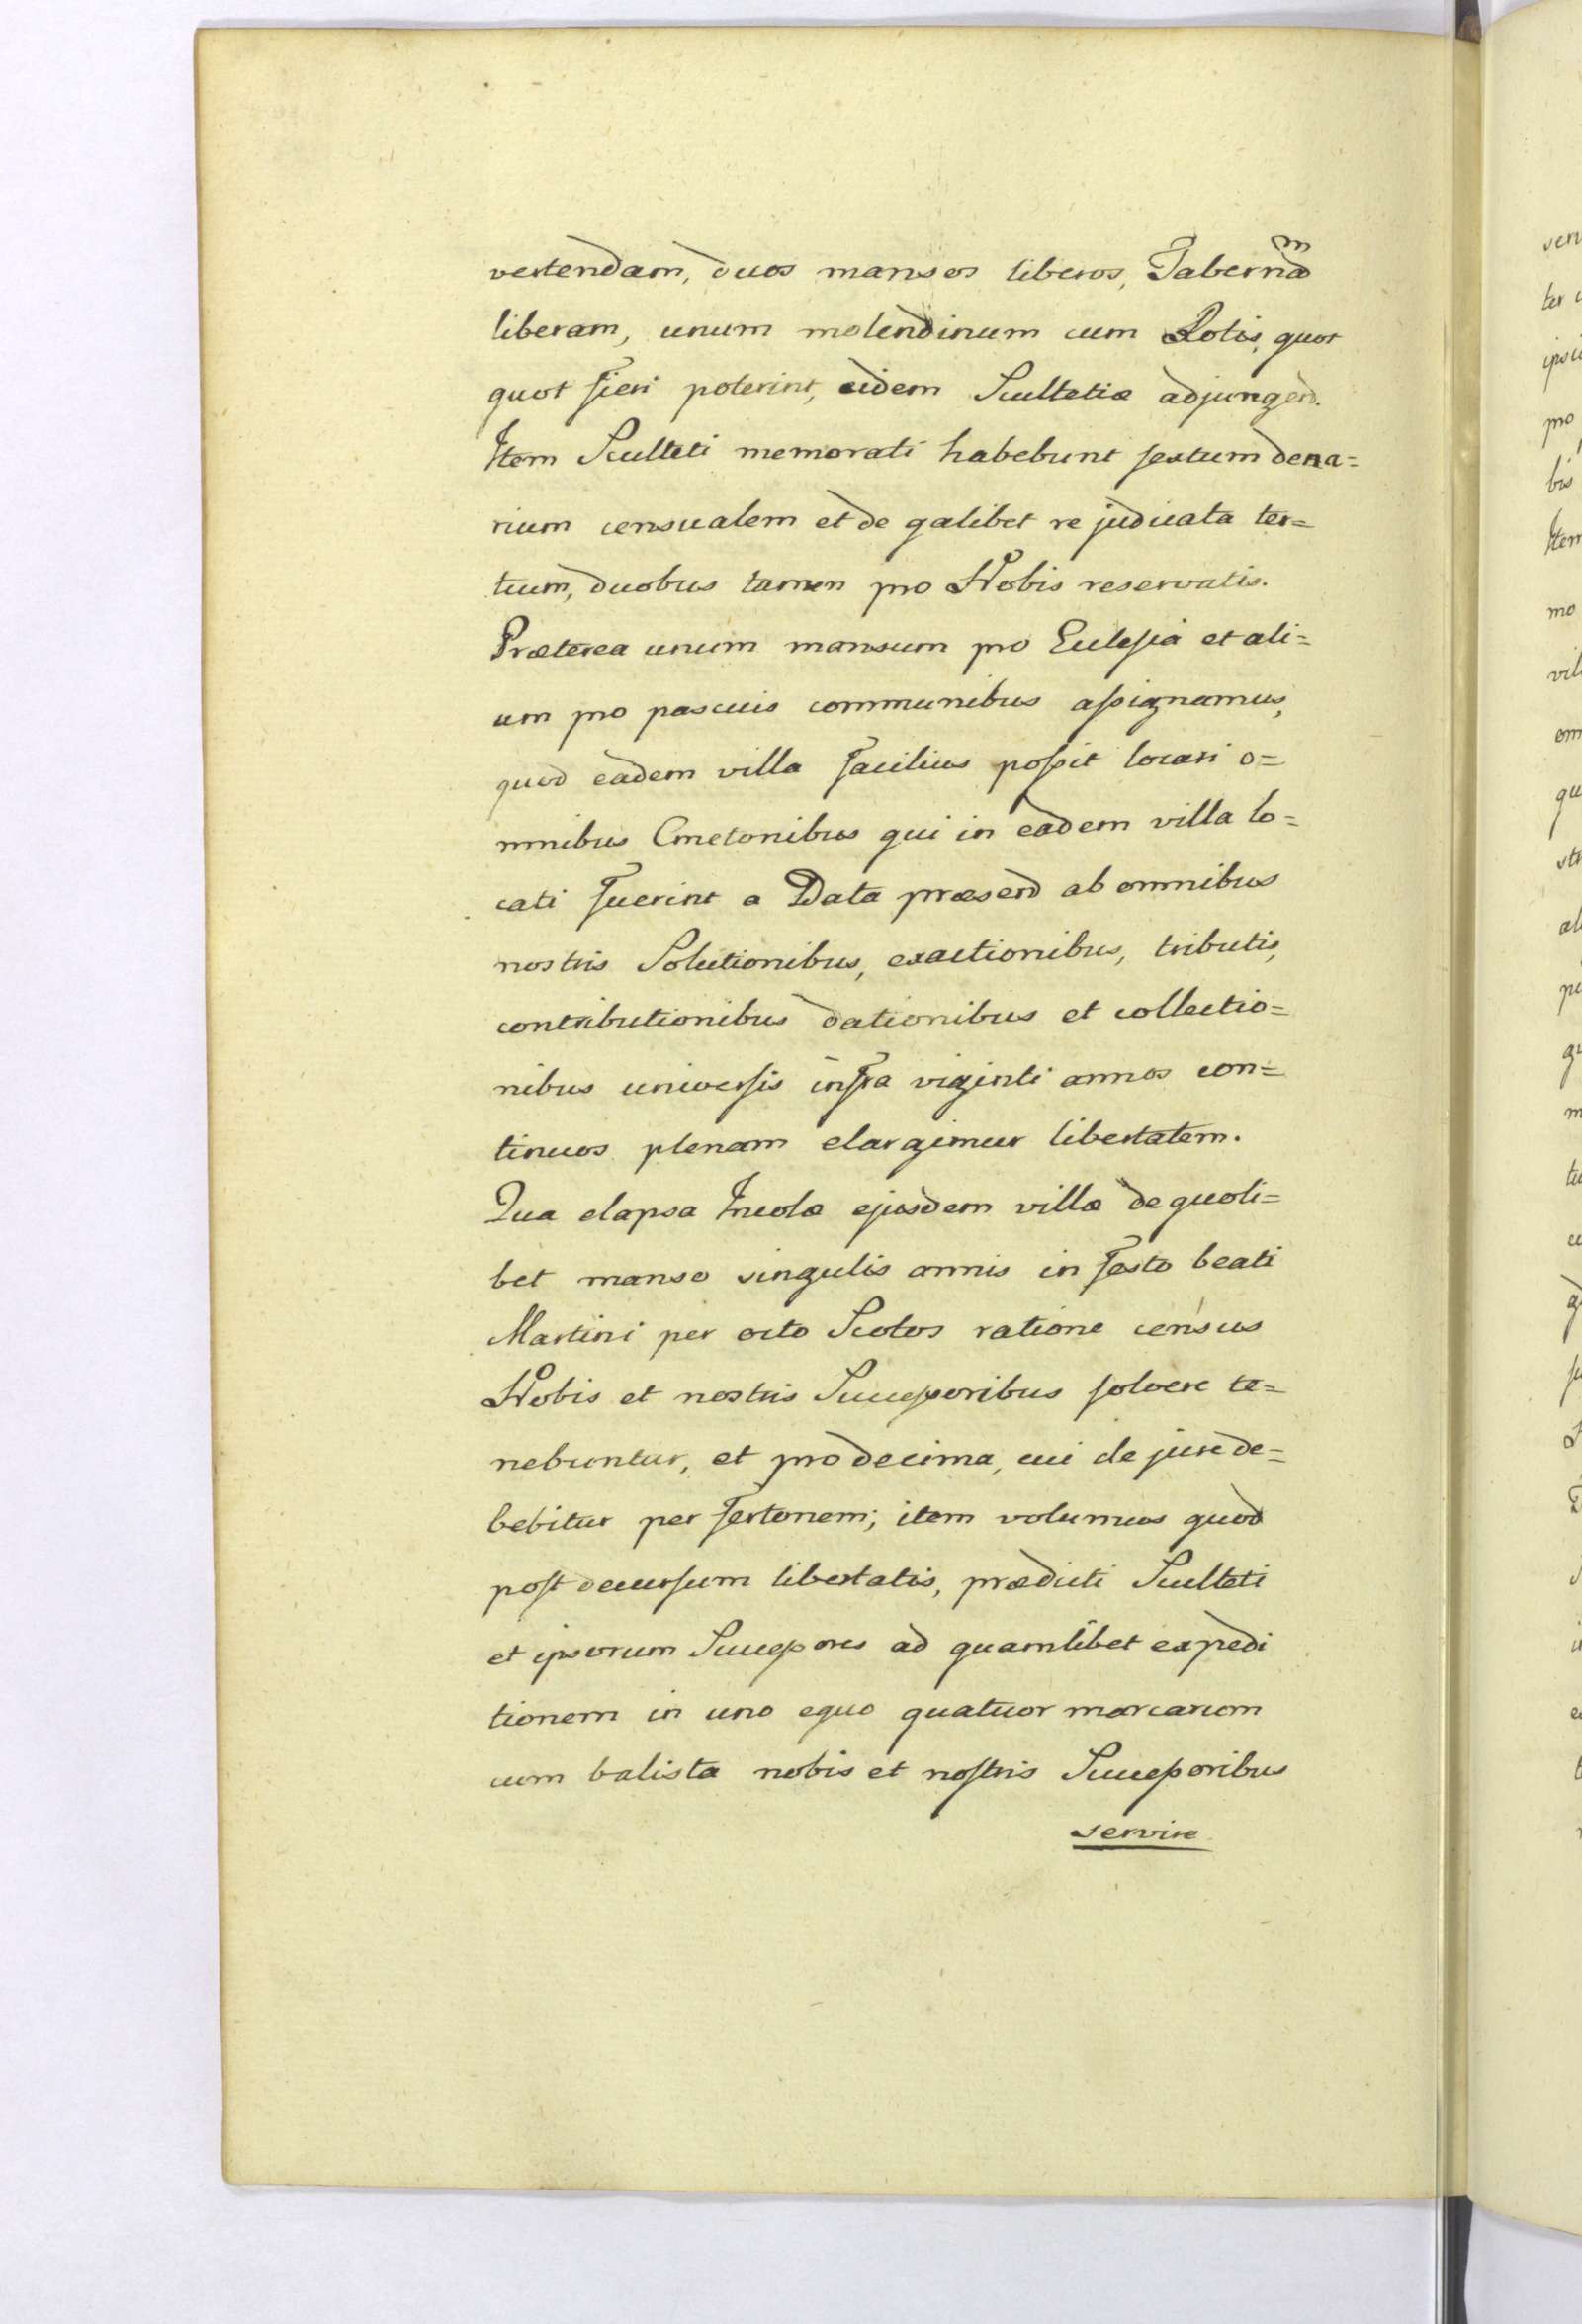 vertendam, duos mansos liberos, Tabernam
liberam, unum molendinum cum Rotis, quot
quot fieri poterint, eidem Scultetiæ adjungend.
Item Sculteti memorati habebunt sextum dena=
rium censualem et de qalibet re judicata ter=
tium, duobus tamen pro Nobis reservatis.
Præterea unum mansum pro Eclesia et ali=
um pro pascuis communibus assignamus,
quod eadem villa facilius possit locari o=
mnibus Cmetonibus qui in eadem villa lo=
cati fuerint a Data præsend ab omnibus
nostris Solutionibus, exactionibus, tributis,
contributionibus dationibus et collectio=
nibus universis infra viginti annos con=
tinuos plenam elargimur libertatem.
Qua elapsa Incolæ ejusdem villæ de quoli=
bet manso singulis annis in festo beati
Martini per octo Scotos ratione census
Nobis et nostris Successoribus solvere te=
nebuntur, et pro decima, cui de jure de=
bebitur per fertonem; item volumus quod
post decursum libertatis, prædicti Sculteti
et ipsorum Successores ad quamlibet expedi
tionem in uno equo quatuor marcarum
cum balista nobis et nostris Successoribus
servire